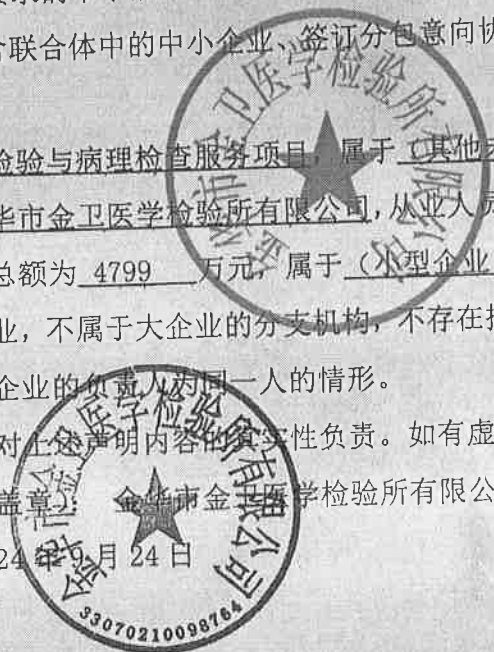 含联合体中的中小企业、签订分包意向协
金华市金卫医学检验所有限公司
检验与病理检查服务项目，属于（其他未
华市金卫医学检验所有限公司，从业人员
总额为 4799 万元，属于（小型企业
业，不属于大企业的分支机构，不存在控
企业的负责人为同一人的情形。
对上述声明内容的真实性负责。如有虚
盖章）： 金华市金卫医学检验所有限公
24年9月24日
金华市金卫医学检验所有限公司
33070210098764